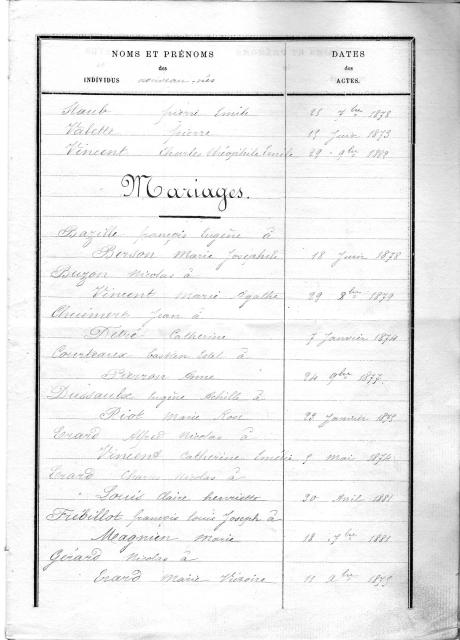 NOMS ET PRÉNOMS
des
INDIVIDUS nouveau-nés
DATES
des
ACTES.
Staub pierre Emile 25 7bre 1878
Valette pierre 15 Juin 1873
Vincent Charles Théophile Emile 29 9bre 1882
Mariages.
Bazille françois Eugène à
Berson Marie Josephete 18 Juin 1878
Buzon Nicolas à
Vincent marie Agathe 29 8bre 1879
Jean à
Catherine 7 Janvier 1874
Courteaux à
Pierron Anne 24 9bre 1877
Dussaulx Eugène Achille à
Piot Marie Rose 23 Janvier
Erard Alfred Nicolas à
Vincent Catherine Emélie 5 mai 1874
Erard Nicolas à
Louis Claire henriette 20 Avril 1881
Frébillot françois louis Joseph à
Magnien Marie 18 7bre 1881
Gérard Nicolas à
Erard Marie Victoire 11 1875